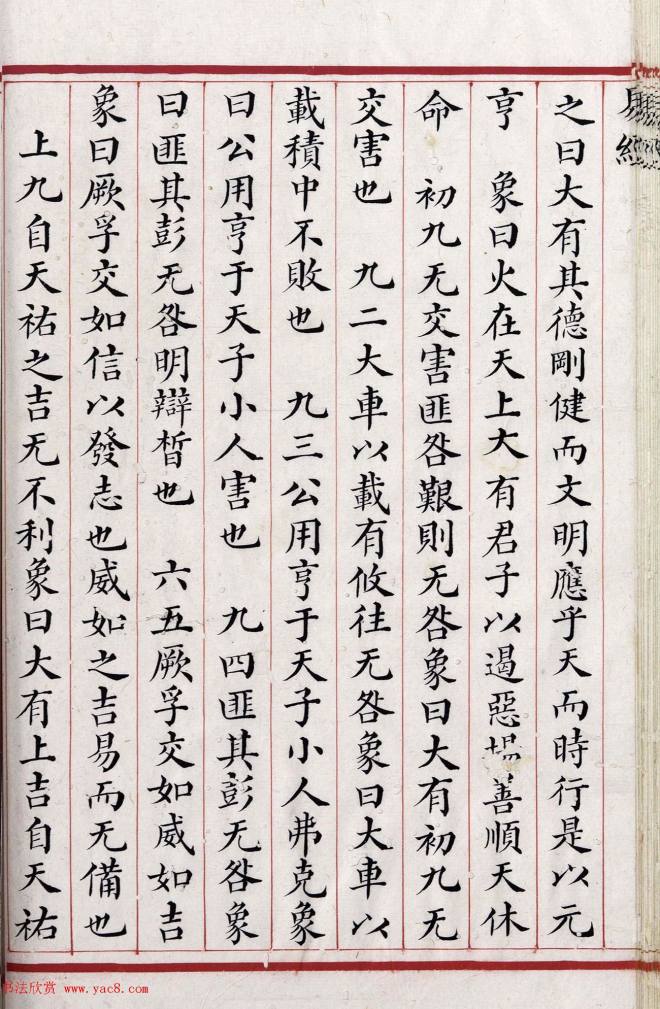 之曰大有其德剛健而文明應乎天而時行是以元
亨　象曰火在天上大有君子以遏惡揚善順天休
命　初九无交害匪咎艱則无咎象曰大有初九无
交害也　九二大車以載有攸往无咎象曰大車以
載積中不敗也　九三公用亨于天子小人弗克象
曰公用亨于天子小人害也　九四匪其彭无咎象
曰匪其彭无咎明辯晢也　六五厥孚交如威如吉
象曰厥孚交如信以發志也威如之吉易而无備也
上九自天祐之吉无不利象曰大有上吉自天祐
书法欣赏 www.yac8.com